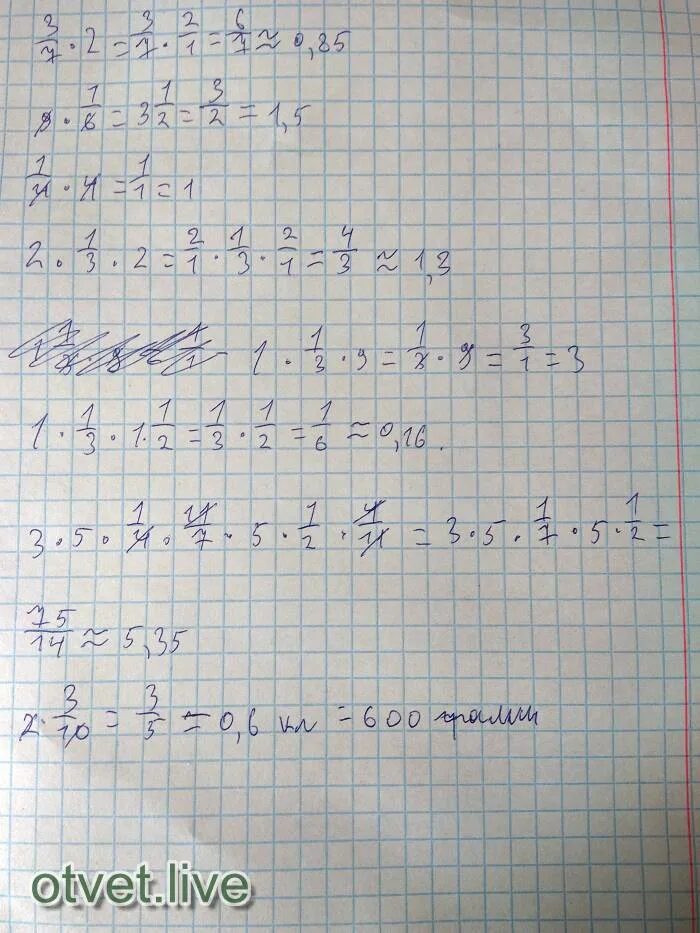 3/7 · 2 = 3/7 · 2/1 = 6/7 ≈ 0,85
9 · 1/6 = 3 1/2 = 3/2 = 1,5
1/4 · 4 = 1/1 = 1
2 · 1/3 · 2 = 2/1 · 1/3 · 2/1 = 4/3 ≈ 1,3
1 · 1/3 · 9 = 1/3 · 9 = 3/1 = 3
1 · 1/3 · 1 · 1/2 = 1/3 · 1/2 = 1/6 ≈ 0,16.
3 · 5 · 1/4 · 11/7 · 5 · 1/2 · 4/11 = 3 · 5 · 1/7 · 5 · 1/2 =
75/14 ≈ 5,35
2 · 3/10 = 3/5 = 0,6 кл = 600 грамм
otvet.live